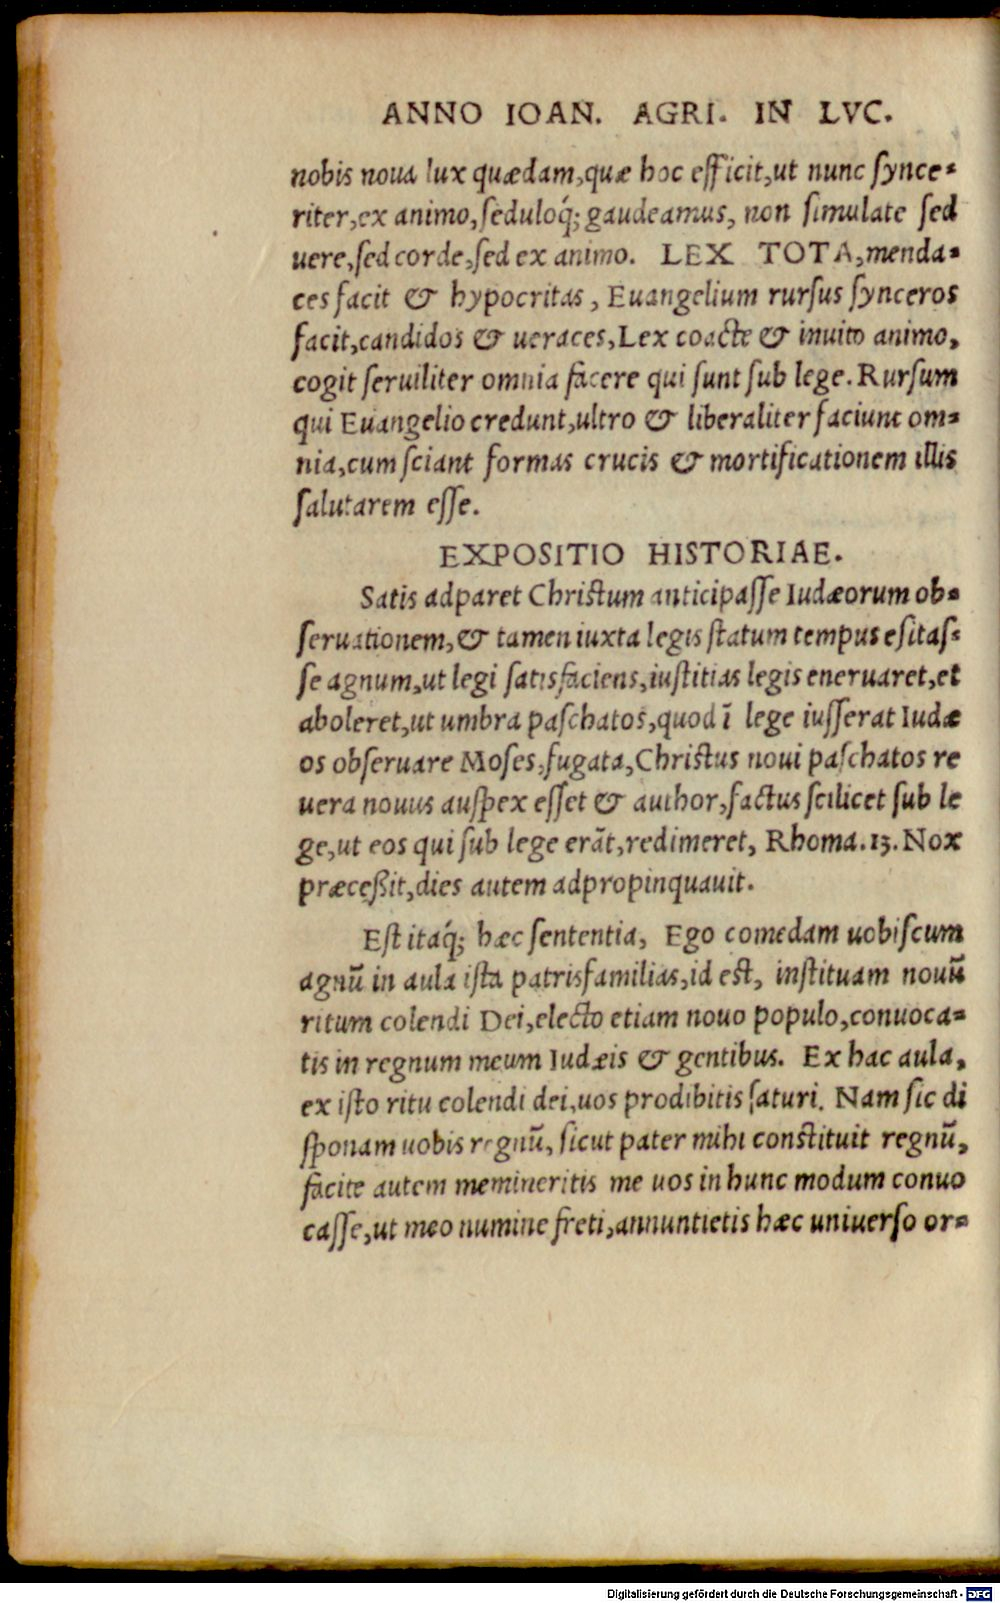 ANNO IOAN. AGRI. IN LVC.
nobis noua lux quædam,quæ hoc efficit,ut nunc ſynce=
riter,ex animo,ſeduloq́; gaudeamus, non ſimulate ſed
uere,ſed corde,ſed ex animo. LEX TOTA,menda=
ces facit & hypocritas, Euangelium rurſus ſynceros
facit,candidos & ueraces,Lex coacte & inuito animo,
cogit ſeruiliter omnia facere qui ſunt ſub lege. Rurſum
qui Euangelio credunt,ultro & liberaliter faciunt om=
nia,cum ſciant formas crucis & mortificationem illis
ſalutarem eſſe.
EXPOSITIO HISTORIAE.
Satis adparet Chriſtum anticipaſſe Iudæorum ob=
ſeruationem,& tamen iuxta legis ſtatum tempus eſitaſ=
ſe agnum,ut legi ſatisfaciens,iuſtitias legis eneruaret,et
aboleret,ut umbra paſchatos,quod ī lege iuſſerat Iudæ
os obſeruare Moſes,fugata,Chriſtus noui paſchatos re
uera nouus auſpex eſſet & author,factus ſcilicet ſub le
ge,ut eos qui ſub lege erāt,redimeret, Rhoma.13. Nox
præceßit,dies autem adpropinquauit.
Eſt itaq́; hæc ſententia, Ego comedam uobiſcum
agnū in aula iſta patrisfamilias,id eſt, inſtituam nouū
ritum colendi Dei,electo etiam nouo populo,conuoca=
tis in regnum meum Iudæis & gentibus. Ex hac aula,
ex iſto ritu colendi dei,uos prodibitis ſaturi. Nam ſic di
ſponam uobis regnū, ſicut pater mihi conſtituit regnū,
facite autem memineritis me uos in hunc modum conuo
caſſe,ut meo numine freti,annuntietis hæc uniuerſo or=
Digitalisierung gefördert durch die Deutsche Forschungsgemeinschaft - DFG